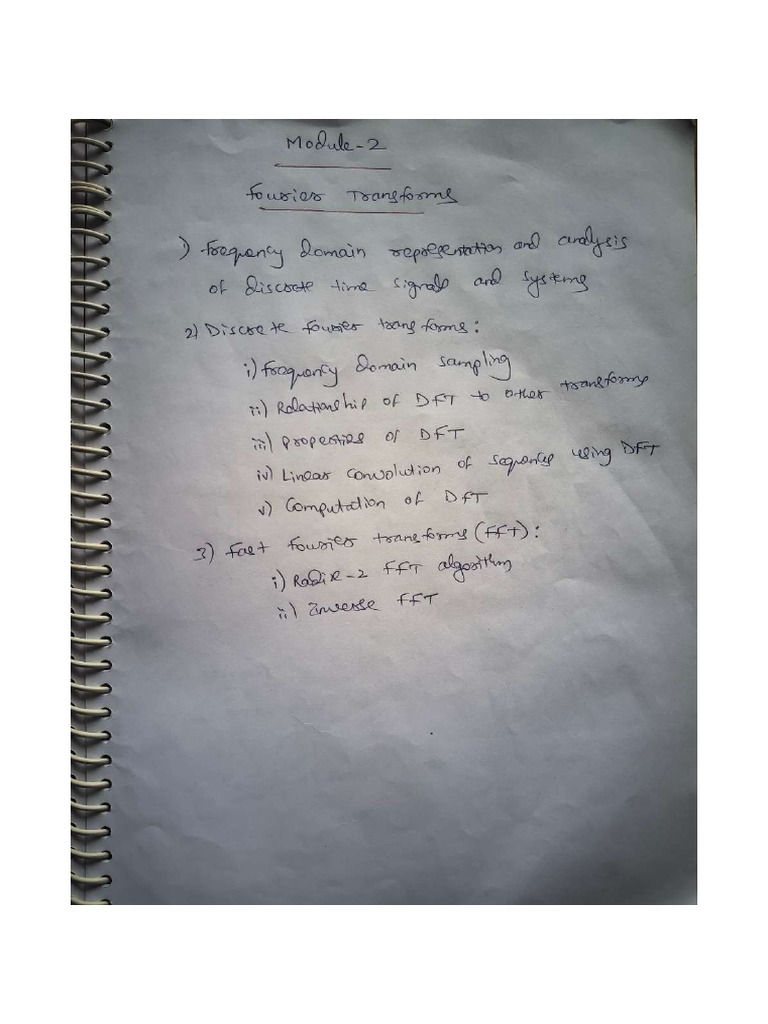 Module-2
Fourier Transforms
1) Frequency domain representation and analysis
of discrete time signals and systems
2) Discrete fourier transforms:
i) Frequency domain sampling
ii) Relationship of DFT to other transforms
iii) Properties of DFT
iv) Linear convolution of sequences using DFT
v) Computation of DFT
3) Fast fourier transforms (FFT):
i) Radix-2 FFT algorithm
ii) Inverse FFT